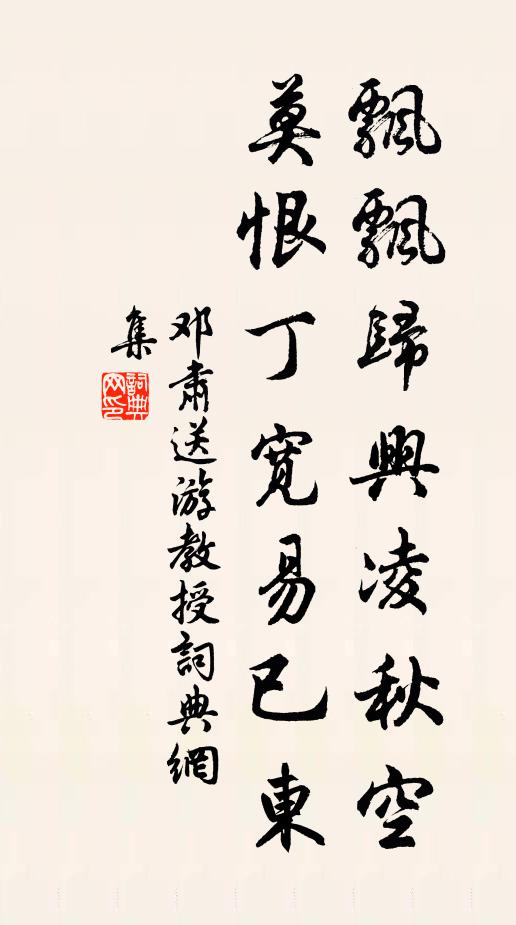 飄飄歸興凌秋空
莫恨丁寬易已東
邓肅送游教授詞典網
集
詞典
网印